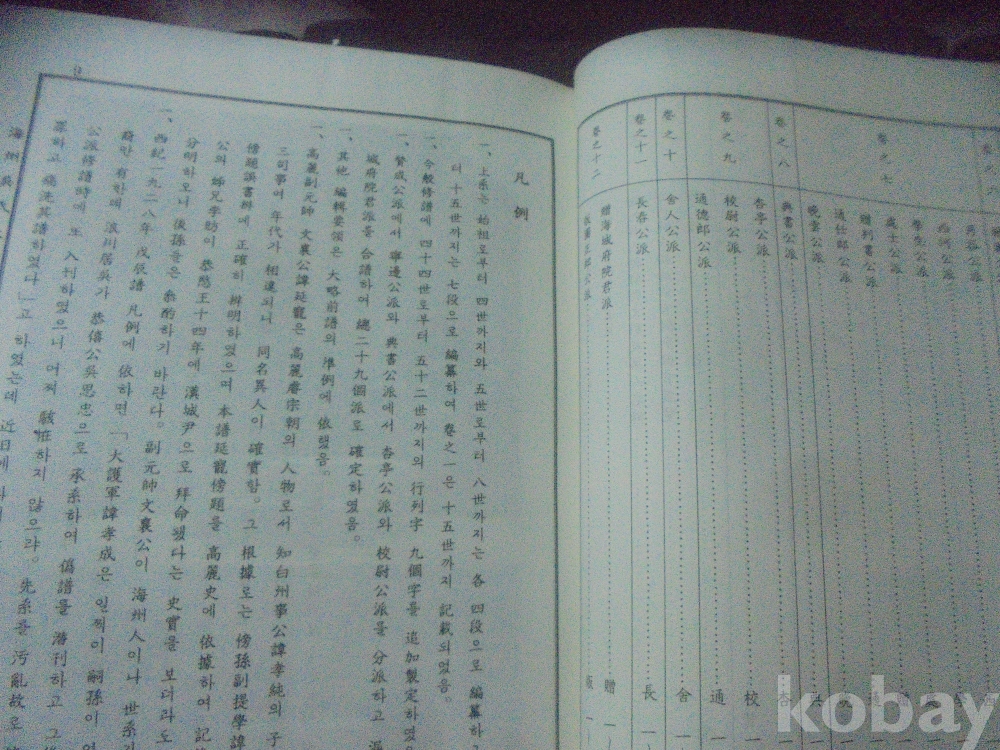 卷之七
卷之八
卷之九
卷之十
卷之十一
卷之十二
西河公派
學生公派
處士公派
贈判書公派
通仕郎公派
晩雲公派
典書公派
杏亭公派
校尉公派
通德郎公派
舍人公派
長春公派
贈海城府院君派
杏
校
通
舍
長
贈
一
凡例
一、上系는 始祖로부터 四世까지와 五世로부터 八世까지는 各 四段으로 編纂하
터 十五世까지는 七段으로 編纂하여 卷之一은 十五世까지 記載되였음。
一、今般修譜에 四十四世로부터 五十二世까지의 行列字 九個字를 追加製定하였
一、贊成公派에서 寧邊公派와 典書公派에서 杏亭公派와 校尉公派를 分派하고
城府院君派를 合譜하여 總二十九個派로 確定하였음。
一、其他 編輯要領은 大略前譜의 準例에 依했음。
一、高麗副元帥 文襄公諱延寵은 高麗睿宗朝의 人物로서 知白州事公諱孝純의 子
三司뿐여 年代가 相違되니 同名異人이 確實함。그 根據로는 傍孫副提學諱
傍題誤書辨에 正確히 辨明하였으며 本譜延寵傍題를 高麗史에 依據하여 記
公의 姉兄李舫이 恭愍王十四年에 漢城尹으로 拜命됐다는 史實을 보더라도
分明하오니 後孫들은 參酌하기 바란다。副元帥文襄公이 海州人이나 世系가
一、西紀一九二八年 戊辰譜 凡例에 依하면「大護軍諱孝成은 일찍이 嗣孫이
浪川居吳가 恭僖公吳思忠으로 承系하여 僞譜를 潛刊하고
公派修譜時에 또 入刊하였으니 어찌 駭怪하지 않으랴。先系를 汚亂故로
하고 痛洗其譜하였다」고 하였는데 近日에
海州吳氏
9
kobay